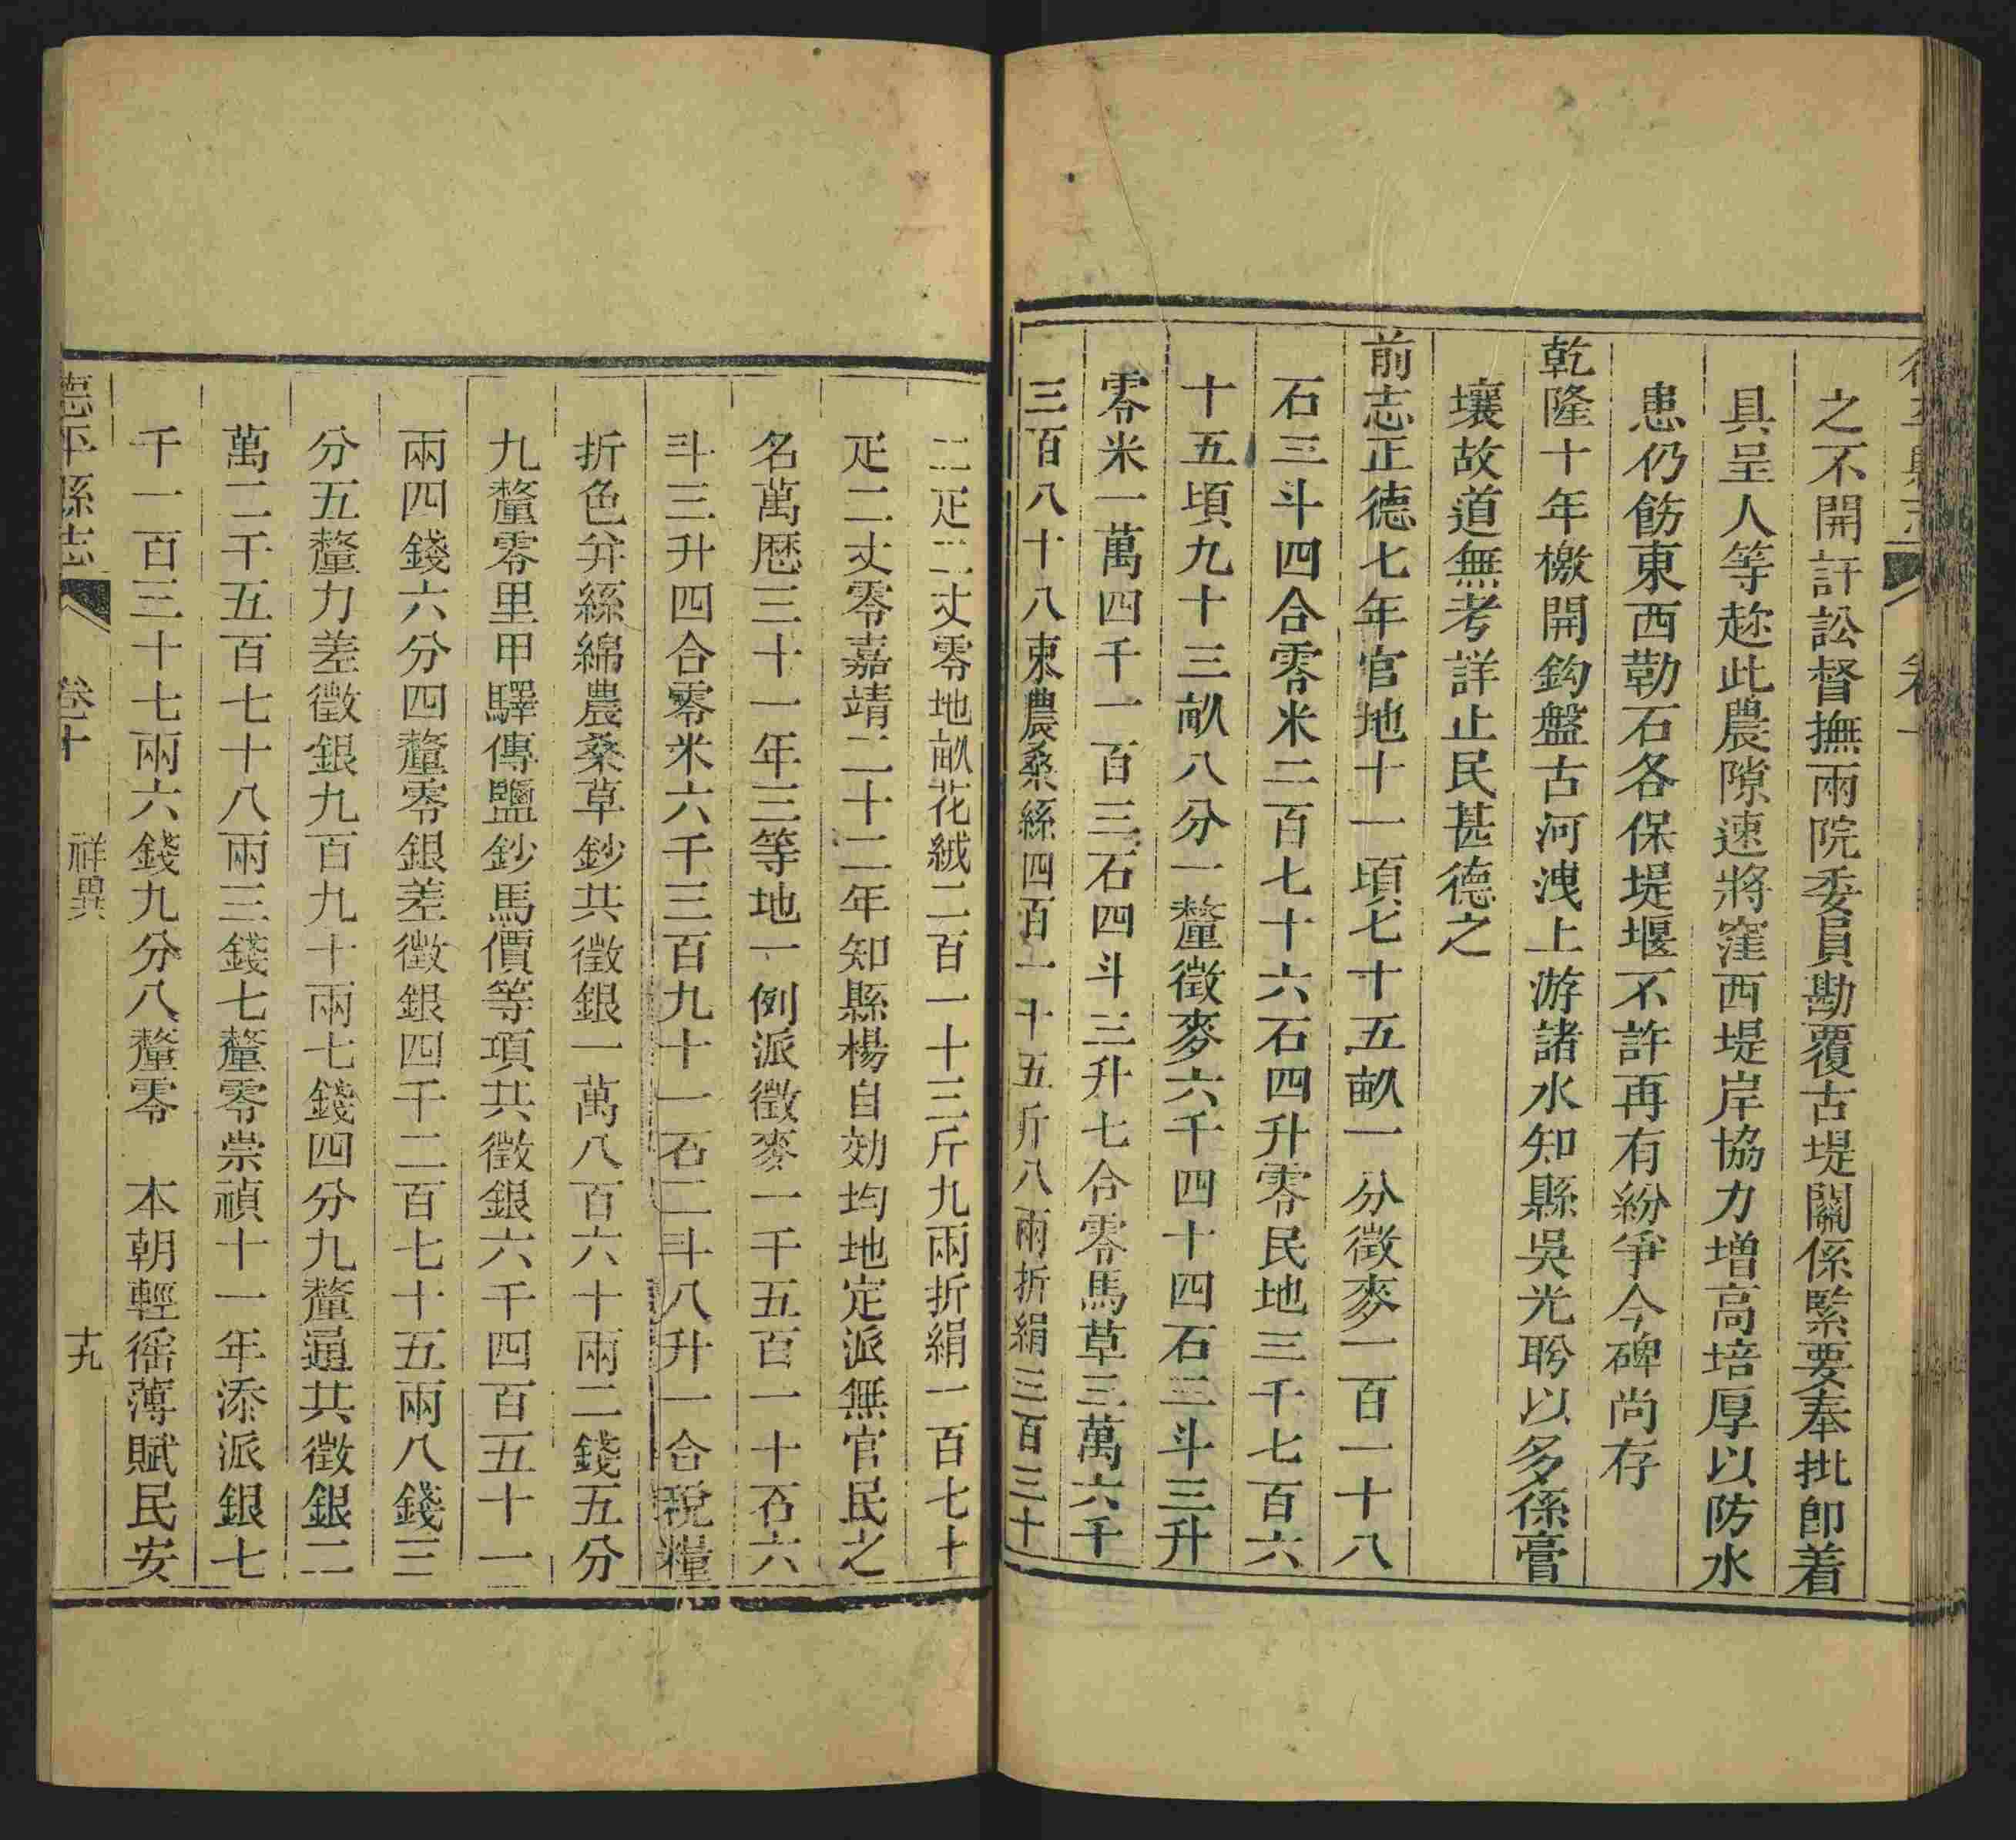 之不開訐訟督撫兩院委員勘覆古堤關係緊要奉批即着
具呈人等趂此農隙速將窪西堤岸協力增高培厚以防水
患仍飭東西勒石各保堤堰不許再有紛爭今碑尚存
乾隆十年檄開鈎盤古河洩上游諸水知縣吳光聆以多係膏
壤故道無考詳止民甚德之
前志正德七年官地十一頃七十五畝一分徵麥一百一十八
石三斗四合零米二百七十六石四升零民地三千七百六
十五頃九十三畝八分一釐徵麥六千四十四石三斗三升
零米一萬四千一百三石四斗三升七合零馬草三萬六千
三百八十八束農桑絲四百一十五斤八兩折絹三百三十
二疋二丈零地畝花絨二百一十三斤九兩折絹一百七十
疋二丈零嘉靖二十二年知縣楊自効均地定派無官民之
名萬曆三十一年三等地一例派徵麥一千五百一十石六
斗三升四合零米六千三百九十一石二斗八升一合稅糧
折色并絲綿農桑草鈔共徵銀一萬八百六十兩二錢五分
九釐零里甲驛傳鹽鈔馬價等項共徵銀六千四百五十一
兩四錢六分四釐零銀差徵銀四千二百七十五兩八錢三
分五釐力差徵銀九百九十兩七錢四分九釐通共徵銀二
萬二千五百七十八兩三錢七釐零崇禎十一年添派銀七
千一百三十七兩六錢九分八釐零　本朝輕徭薄賦民安
德平縣志　卷十　祥異　十九